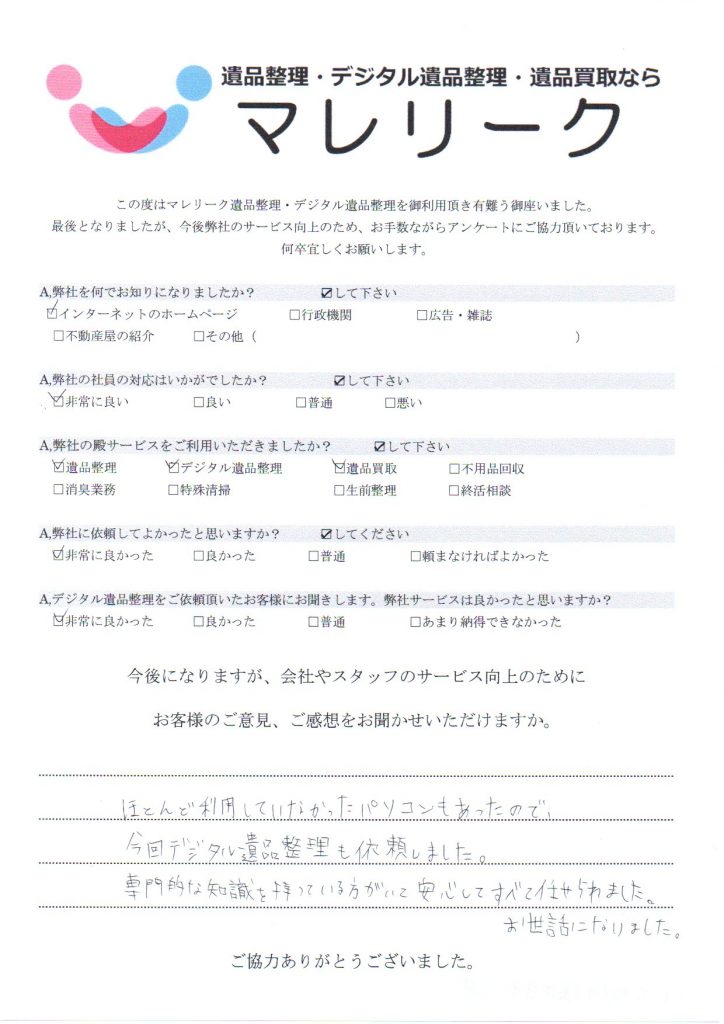 遺品整理・デジタル遺品整理・遺品買取なら
マレリーク
この度はマレリーク遺品整理・デジタル遺品整理を御利用頂き有難う御座いました。
最後となりましたが、今後弊社のサービス向上のため、お手数ながらアンケートにご協力頂いております。
何卒宜しくお願いします。
A,弊社を何でお知りになりましたか？ ☑して下さい
☑インターネットのホームページ □行政機関 □広告・雑誌
□不動産屋の紹介 □その他（ ）
A,弊社の社員の対応はいかがでしたか？ ☑して下さい
☑非常に良い □良い □普通 □悪い
A,弊社の殿サービスをご利用いただきましたか？ ☑して下さい
☑遺品整理 ☑デジタル遺品整理 ☑遺品買取 □不用品回収
□消臭業務 □特殊清掃 □生前整理 □終活相談
A,弊社に依頼してよかったと思いますか？ ☑してください
☑非常に良かった □良かった □普通 □頼まなければよかった
A,デジタル遺品整理をご依頼頂いたお客様にお聞きします。弊社サービスは良かったと思いますか？
☑非常に良かった □良かった □普通 □あまり納得できなかった
今後になりますが、会社やスタッフのサービス向上のために
お客様のご意見、ご感想をお聞かせいただけますか。
ほとんど利用していなかったパソコンもあったので、
今回デジタル遺品整理も依頼しました。
専門的な知識を持っている方がいて安心してすべて任せられました。
お世話になりました。
ご協力ありがとうございました。